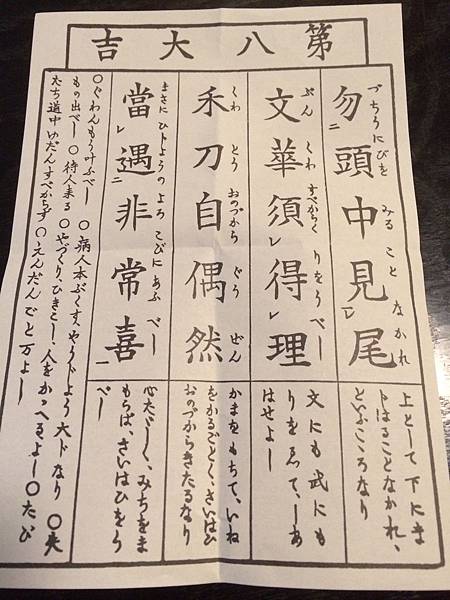 第八大吉
づちうにびを みる こと なかれ
勿二頭中見レ尾一
上として下にま
じはることなかれ、
といふこころなり
ぶん くわ すべからく りをうべし
文華須レ得レ理
文にも武にも
りをゑて、しあ
はせよし
くわ とう おのづから ぐう ぜん
禾刀自偶然
かまをもちて、いね
をかるごとく、さいはひ
おのづからきたるなり
まさに ひじようのよろ こびに あふ べし
當レ遇二非常喜一
心ただしく、みちをま
もらば、さいはひをう
べし
〇ぐわんもう叶ふべし 〇病人本ぶくす、やうじよう大じなり 〇失
もの出べし 〇待人来る 〇やづくりひきこし、人をかゝへるよし〇たび
たち道中ゆだんすべからず 〇えんだんごと万よし